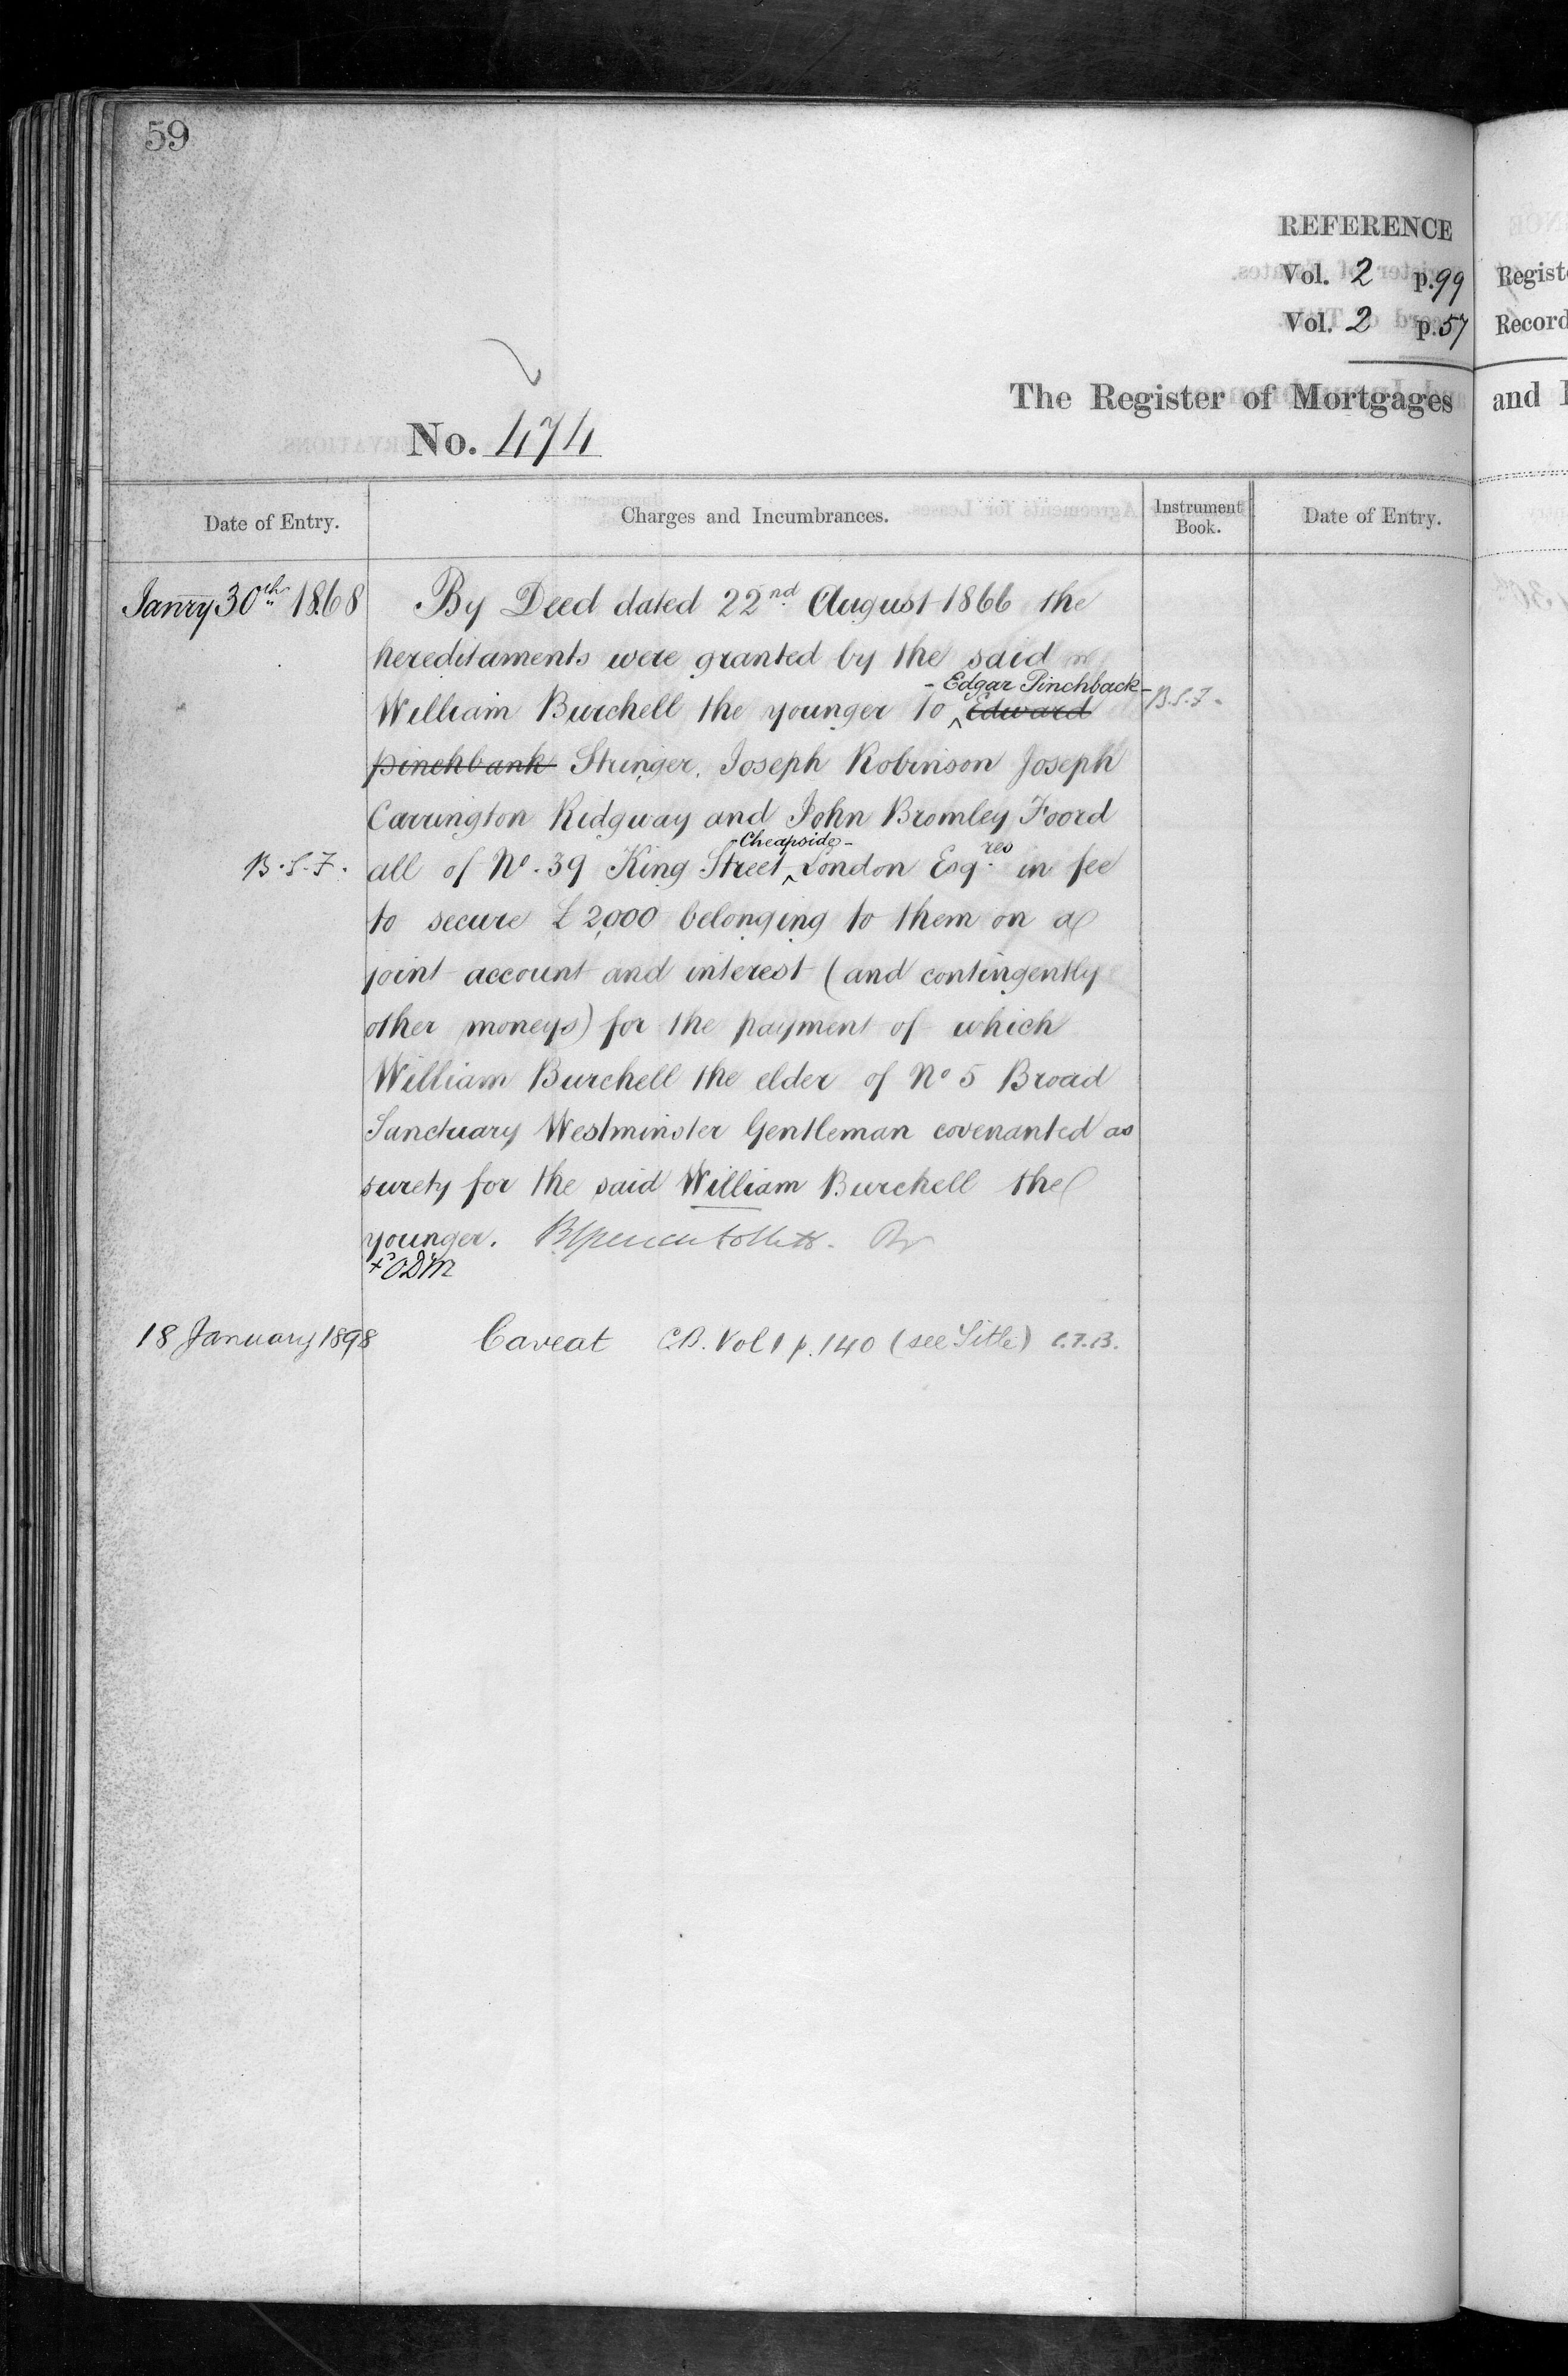 59
REFERENCE
Vol. 2 p. 99 Regist
Vol. 2 p. 57 Record
The Register of Mortgages and
No. 474
Date of Entry. Charges and Incumbrances. Instrument Book. Date of Entry.
Janry 30th 1868 By Deed dated 22nd August 1866 the
hereditaments were granted by the said
- Edgar Pinchback -
William Burchell the younger to ^ Edward B.S.F.
pinchbank Stringer, Joseph Robinson Joseph
Carrington Ridgway and John Bromley Foord
- Cheapside -
B.S.F. all of No. 39 King Street ^ London Esqres in fee
to secure £2,000 belonging to them on a
joint account and interest (and contingently
other moneys) for the payment of which
William Burchell the elder of No 5 Broad
Sanctuary Westminster Gentleman covenanted as
surety for the said William Burchell the
younger.
18 January 1898 Caveat C.B. Vol 1 p. 140 (see Title) C.F.B.